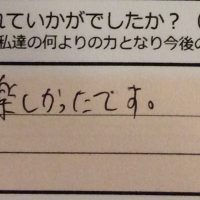 れていかがでしたか？（
私達の何よりの力となり今後の
楽しかったです。